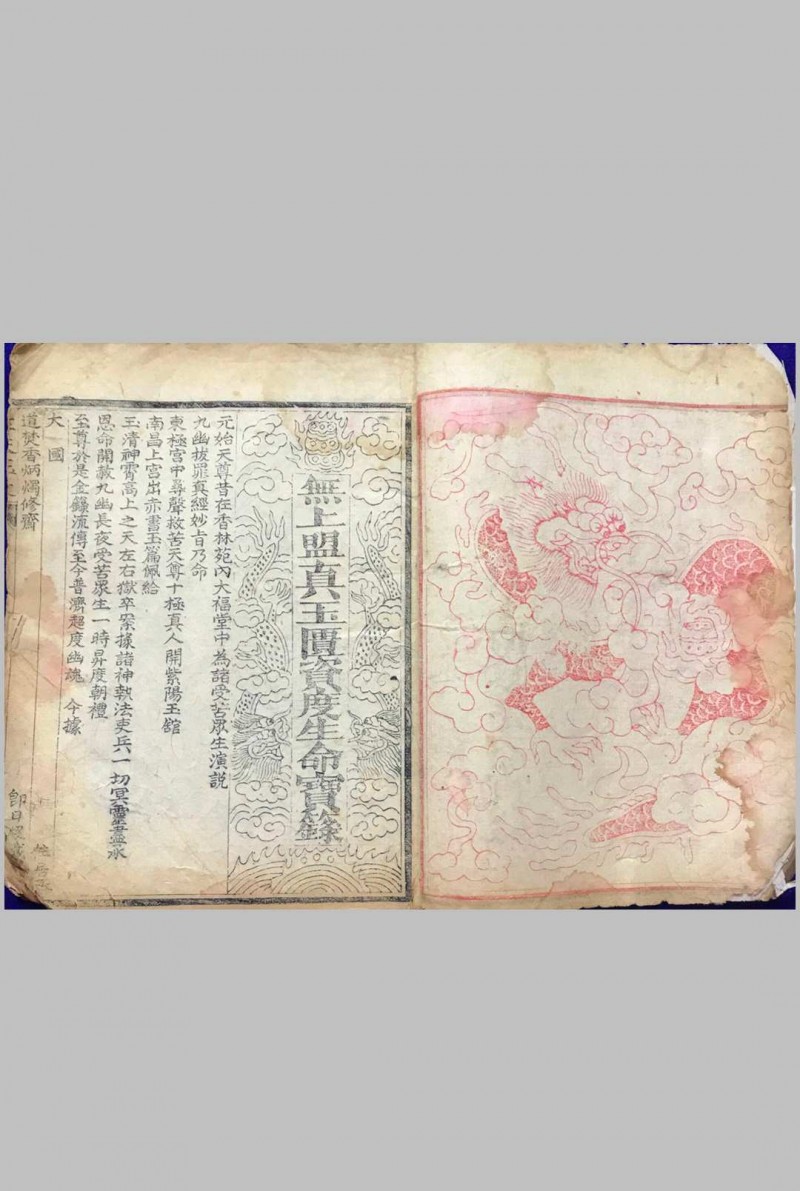 無上盟真玉匱資度生命寶籙
元始天尊昔在香林苑內大福堂中為諸受苦眾生演說
九幽拔罪真經妙旨乃命
東極宮中尋聲救苦天尊十極真人開紫陽玉舘
南昌上宮出赤書玉篇佩給
玉清神霄高上之天左右獄卒案據諸神執法吏兵一切冥靈盡承
恩命開赦九幽長夜受苦眾生一時昇度朝禮
至尊於是金籙流傳至今普濟超度幽魂 今據
大國
道焚香炳燭修齋
即日